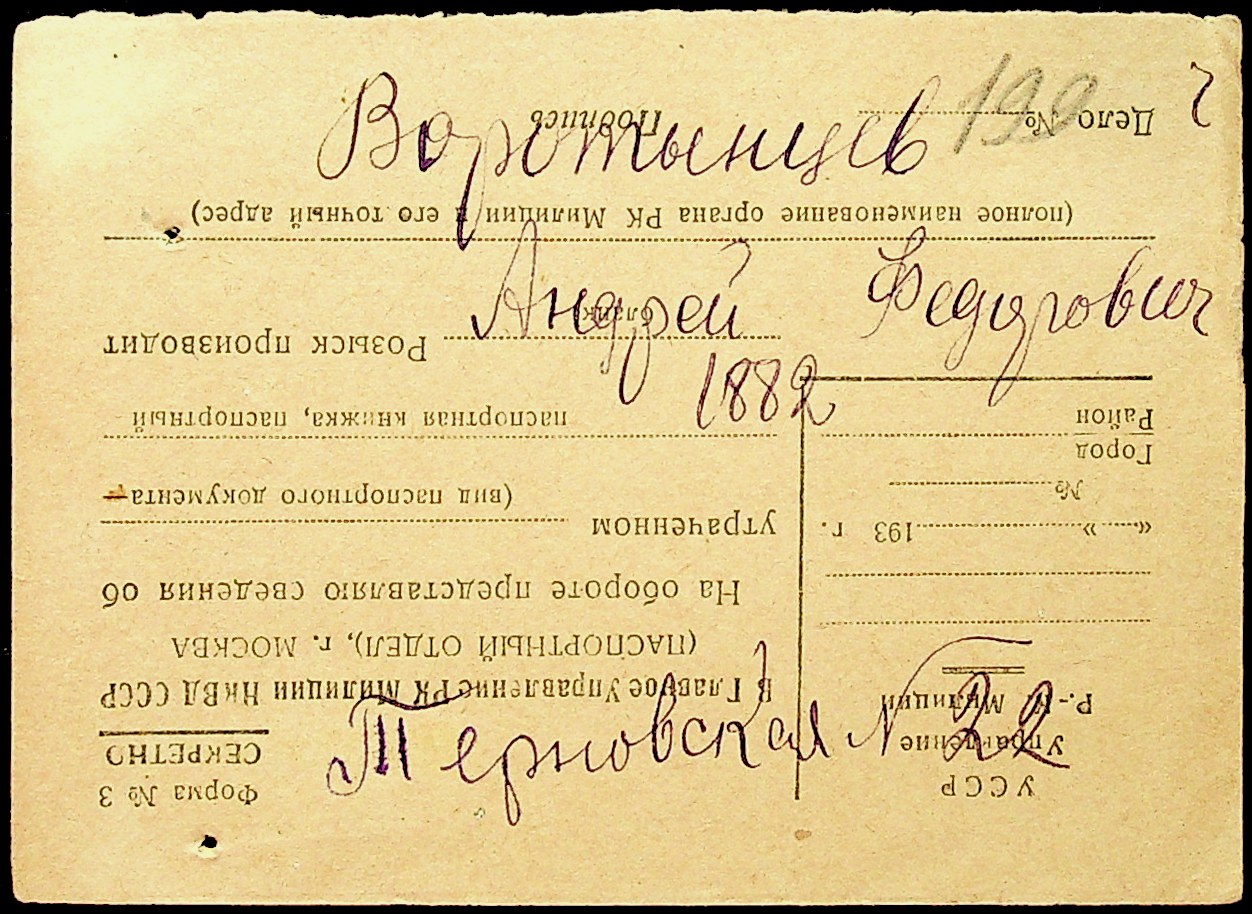 Воротынцев
190
Андрей Федорович
1882
Терновская № 22
УССР
Управление
Р.-К. Милиции
« » 193 г.
№
Город
Район
Дело №
Форма № 3
СЕКРЕТНО
В Главное Управление РК Милиции НКВД СССР
(ПАСПОРТНЫЙ ОТДЕЛ), г. МОСКВА
На обороте представляю сведения об
утраченном
(вид паспортного документа—
паспортная книжка, паспортный
бланк)
Розыск производит
(полное наименование органа РК Милиции и его точный адрес)
Подпись